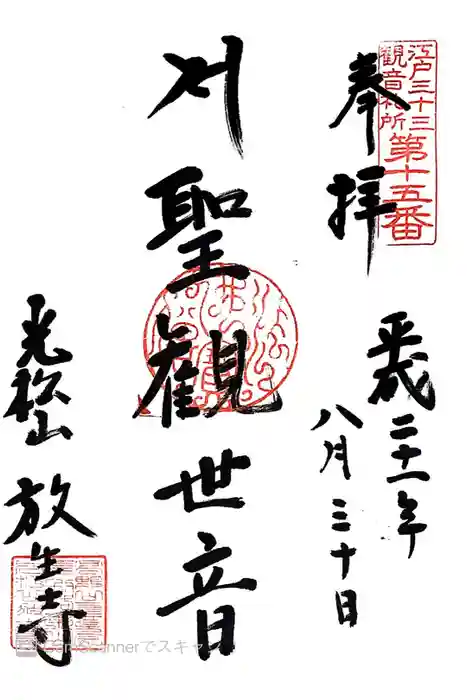 江戸三十三
観音札所
第十五番
奉拝
平成二十一年
八月三十日
聖觀世音
光松山
放生寺
CamScannerでスキャ